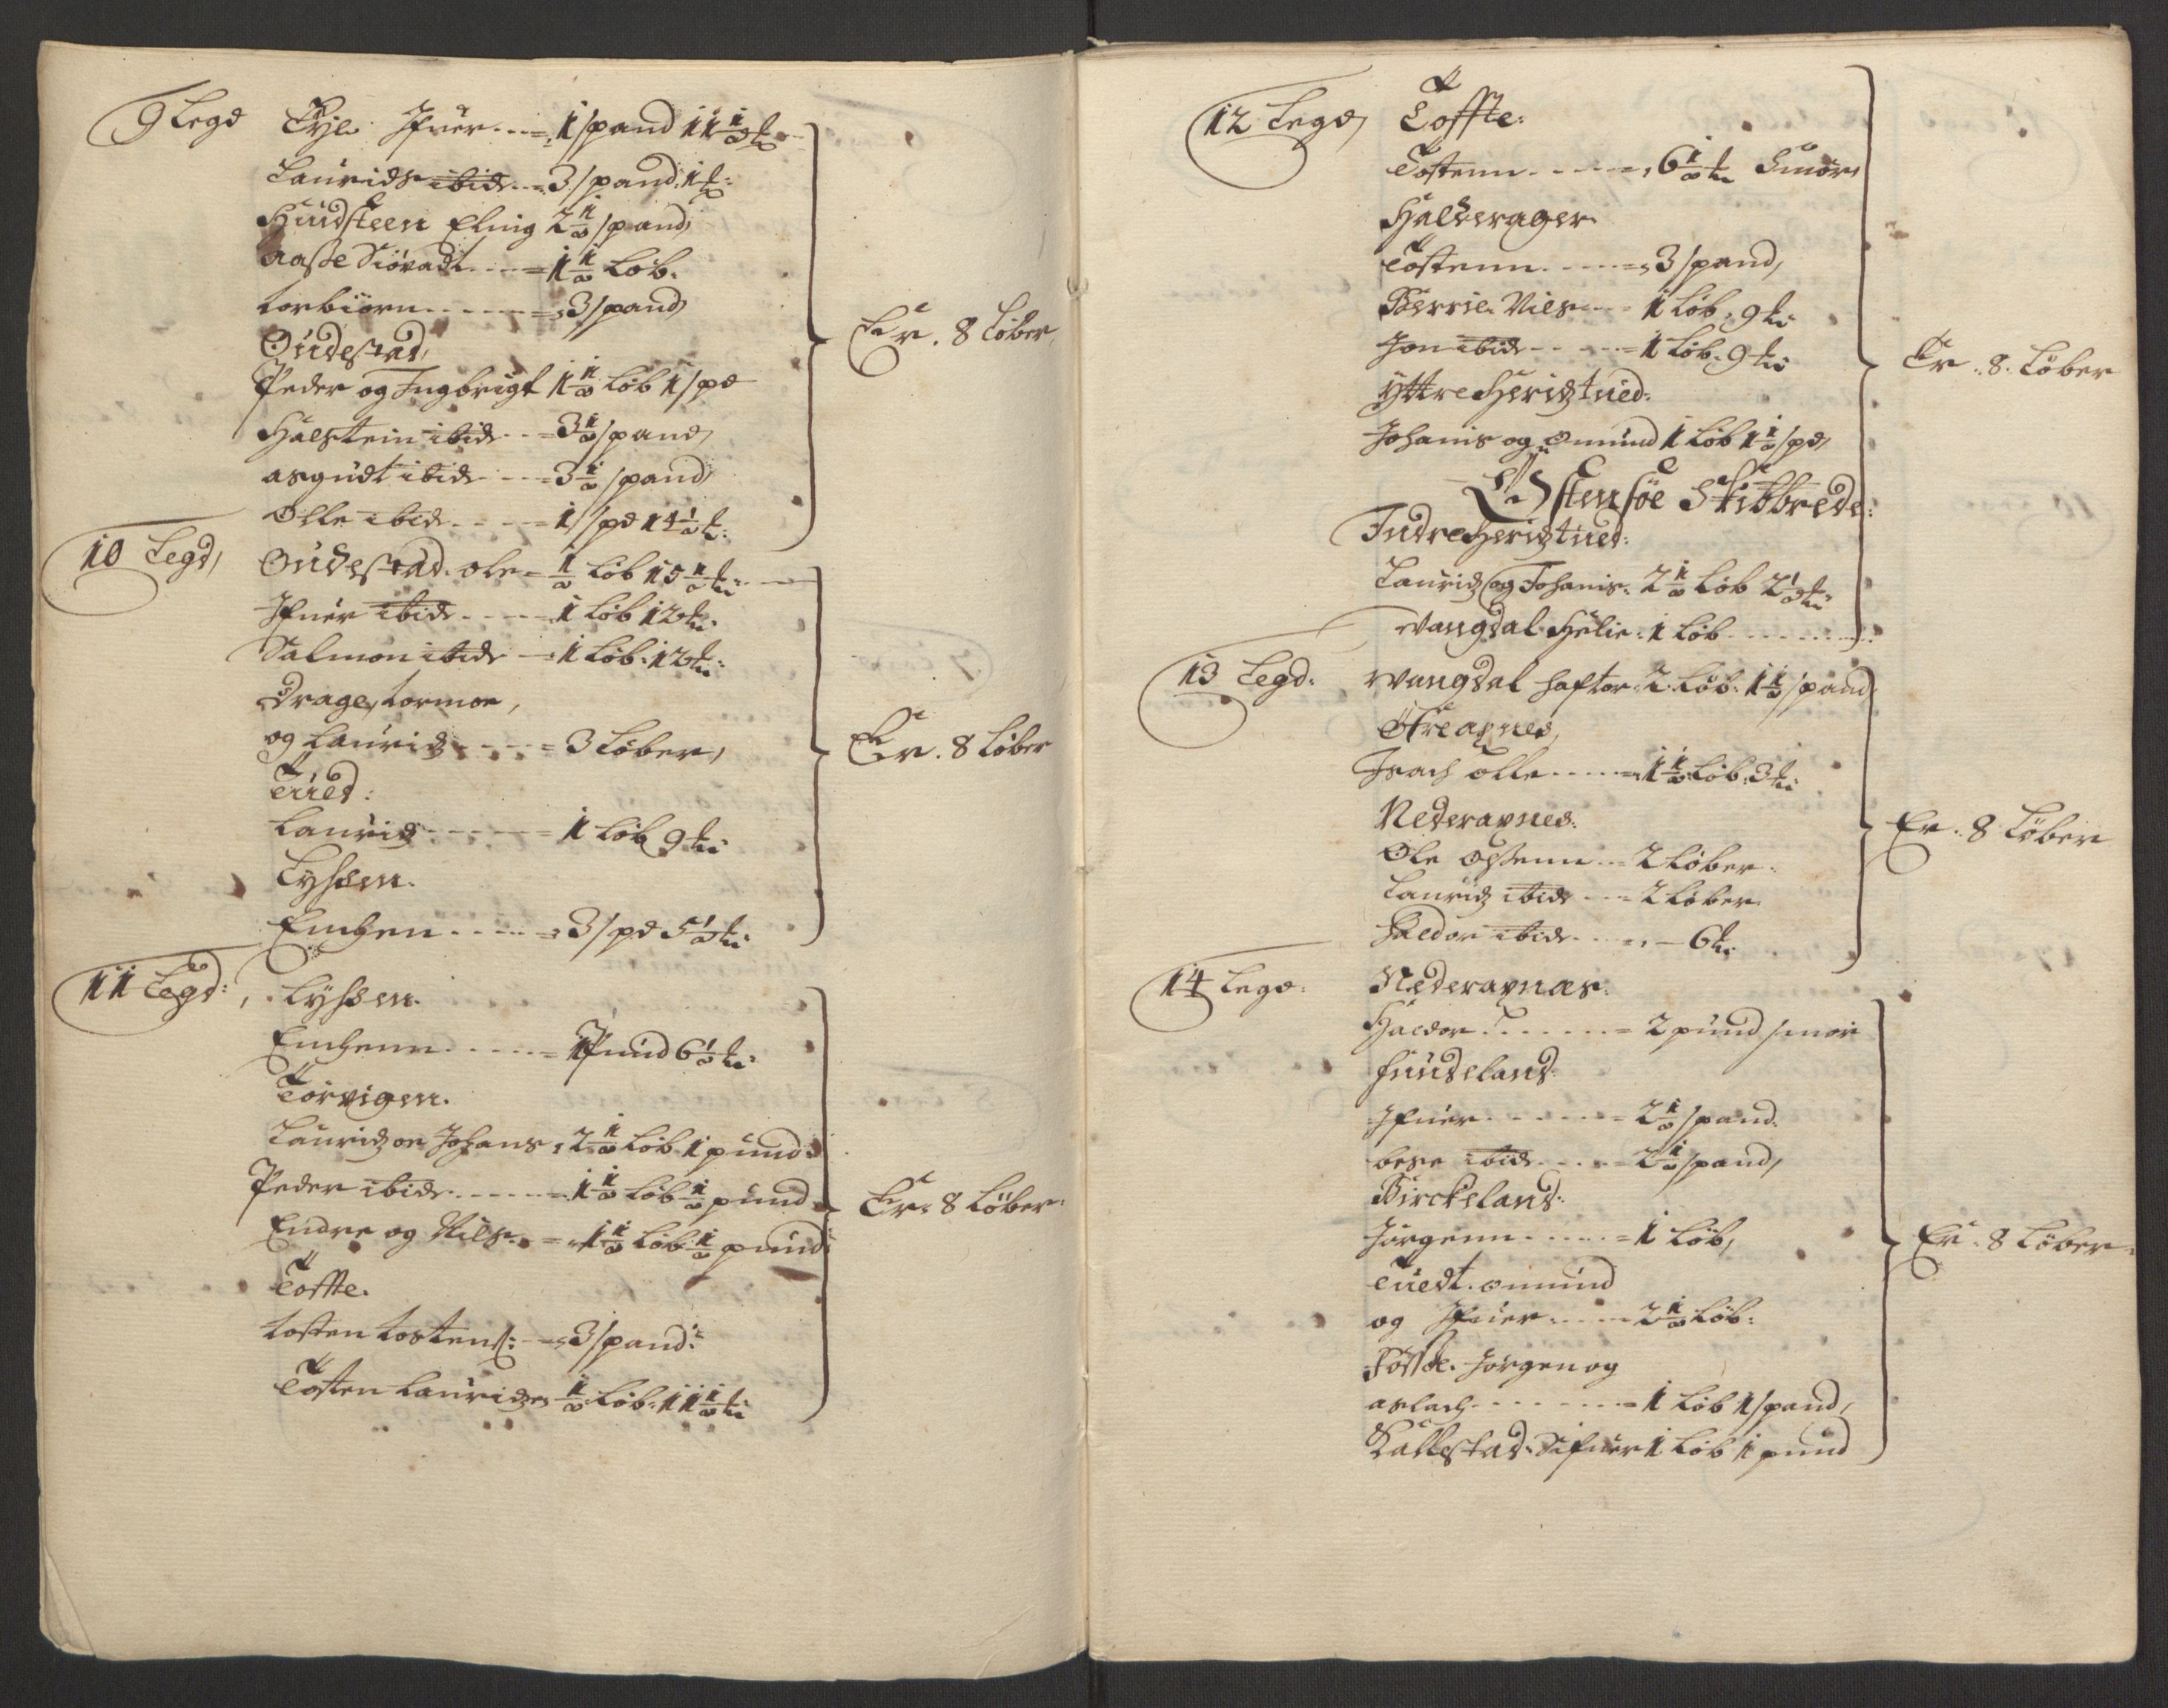 9 Legd
Tyle Ifver --- = 1 spand 11 1/2 ℔
Lauridts ibid --- 3 spand: 1 ℔:
Hundsteen Elling 2 1/2 spand
Aasse Siøvadt --- = 1 1/2 Løb.
torbiørn --- = 3 spand
Oudestad,
Peder og Ingbrigt 1 1/2 Løb 1 spd
Halstein ibid -- = 3 1/2 spand,
asgudt ibid --- = 3 1/2 spand
Olle ibid --- = 1 spd 14 1/2 ℔:
Er. 8 Løber
10 Legd,
Oudestad. ole = 1/2 Løb 15 1/2 ℔:
Ifuer ibid --- = 1 Løb 12 ℔:
Salmon ibid --- 1 Løb: 12 ℔:
Drage, tormon,
og Lauridz --- = 3 Løber,
Tued:
Lauridz --- = 1 Løb 9 ℔:
Lyssen.
Emchen --- = 3 spd 5 1/2 ℔:
Er. 8 Løber
11 Legd:,
Lyssen.
Emchenn --- = 1 Pund 6 1/2 ℔:
Torvigen.
Lauridz on Johans, 2 1/2 Løb 1 pund:
Peder ibid --- = 1 1/2 Løb 1/2 pund
Endre og Nils. = 1 1/2 Løb 1/2 pund:
Toffte.
tosten tostens: - = 3 spand:
Tosten Lauridzen 1/2 Løb: 11 1/2 ℔:
Er: 8 Løber:
12 Legd,
Toffte:
Tostenn --- = 6 1/2 ℔ Smør,
Halderager
Tostenn --- = 3 spand,
Børrie. Niels --- 1 Løb, 9 ℔:
Jon ibid --- = 1 Løb. 9 ℔:
Yttre Heridztued:
Johanis og Omund 1 Løb 1 1/2 spd,
Østensøe Skibbrede:
Indre Heridztued:
Lauridz og Johanis: 2 1/2 Løb 2 1/2 ℔:
wangdal Helie: 1 Løb ---
Er. 8. Løber
13 Legd:
wangdal haftor 2 Løb: 1 1/2 spand
Ofreaxnes,
Isach olle --- = 1 1/2 Løb: 3 ℔:
Nederaxnes:
Ole Ossenn -- 2 Løber.
Lauridz ibid --- 2 Løber
Haldor ibid --- 6 ℔:
Er. 8 Løber
14 Legd:
Nederaxnæs:
Haldor --- = 2 pund smør
Sundeland:
Ifuer --- = 2 1/2 spand.
ibid --- = 2 1/2 spand,
Birckeland:
Jørgenn --- = 1 Løb,
Tuedt. omund
og Ifuer --- 2 1/2 Løb:
Fosse. Jørgen og
aslach --- = 1 Løb 1 spand,
Kallestad: Sifuer 1 Løb 1 pund
Er. 8 Løber: